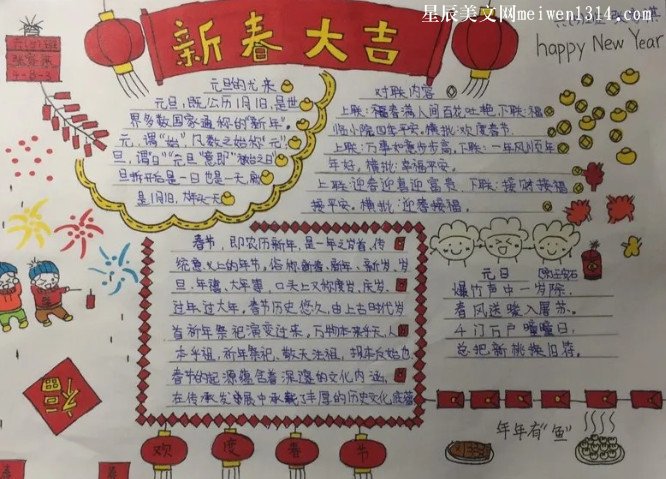 星辰美文网meiwen1314.com
happy New Year
新春大吉
元旦的尤来
元旦，既公历1月1日，是世
界多数国家通称的“新年”。
元，谓“始”，凡数之始称“元”，
旦，谓“日”“元旦意即”初始之日
旦拆开后是一日也是一天，
是1月1日，
对联内容
上联：福春满人间百花吐艳，下联：福
临小院四季平安。横批：欢度春节
上联：万事如意步步高，下联：一年风顺年
年好。横批：幸福平安。
上联：迎春迎喜迎富贵，下联：接财接福
接平安。横批：迎春接福。
春节，即农历新年，是一年之岁首、传
统意义上的年节。俗称新春、新年、新岁、岁
旦、年禧、大年等，口头上又称度岁、庆岁、
过年、过大年。春节历史悠久，由上古时代岁
首祈年祭祀演变过来。万物本来乎天，人
本乎祖，祈年祭祀、敬天法祖，报本反始也
春节的起源蕴含着深邃的文化内涵，
在传承发展中承载了丰厚的历史文化底蕴
元日 宋·王安石
爆竹声中一岁除，
春风送暖入屠苏。
千门万户曈曈日，
总把新桃换旧符。
福
欢度春节
年年有“鱼”
春